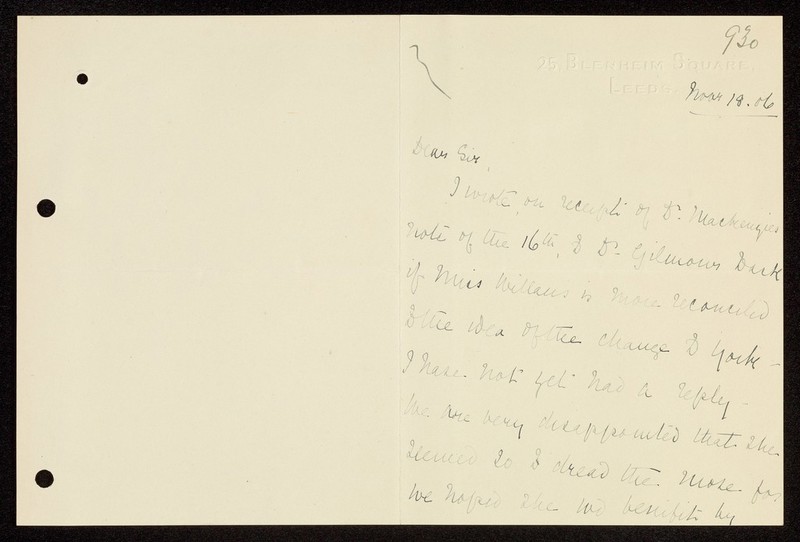 930
25, BLENHEIM SQUARE,
LEEDS.
Novr 18. 06
Dear Sir,
I wrote, on receipt of Dr. Mackenzies
note of the 16th, to Dr. Gilmour
if Miss Willans is more reconciled
to the idea of the change to York -
I have not yet had a reply -
We are very disappointed that she
seemed so to dread the move for
we hoped she wd benifit by